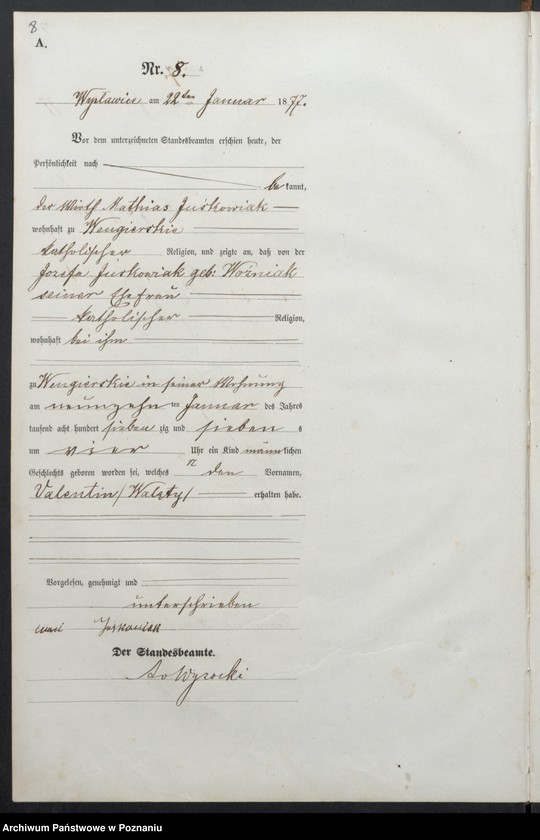 8
A.
Nr. 8.
Wyszlawice am 22ten Januar 1877.
Vor dem unterzeichneten Standesbeamten erschien heute, der
Persönlichkeit nach
bekannt,
der Wirth Mathias Juskowiak
wohnhaft zu Wengierskie
katholischer Religion, und zeigte an, daß von der
Jozefa Juskowiak geb: Woźniak
seiner Ehefrau
katholischer Religion,
wohnhaft bei ihm
zu Wengierskie in seiner Wohnung
am neunzehn ten Januar des Jahres
tausend acht hundert sieben zig und sieben s
um vier Uhr ein Kind männlichen
Geschlechts geboren worden sei, welches den Vornamen,
Valentin /Walęty/ erhalten habe.
Vorgelesen, genehmigt und
unterschrieben
Juskowiak
Der Standesbeamte.
Wysocki
Archiwum Państwowe w Poznaniu